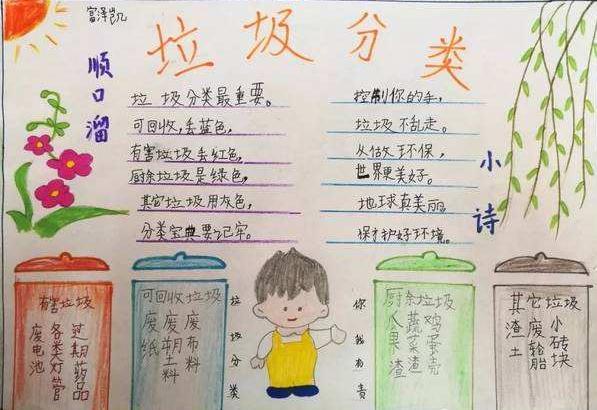 富泽凯
垃圾分类
顺口溜
垃圾分类最重要。
可回收,丢蓝色,
有害垃圾丢红色,
厨余垃圾是绿色,
其它垃圾用灰色,
分类宝典要记牢。
小诗
控制你的手,
垃圾不乱走。
从做环保,
世界更美好。
地球真美丽,
保护好环境。
有害垃圾
过期药品
各类灯管
废电池
可回收垃圾
废布料
废塑料
废纸
垃圾分类
你我有责
厨余垃圾
鸡蛋壳
蔬菜渣
瓜果渣
其它垃圾
小砖块
废轮胎
渣土